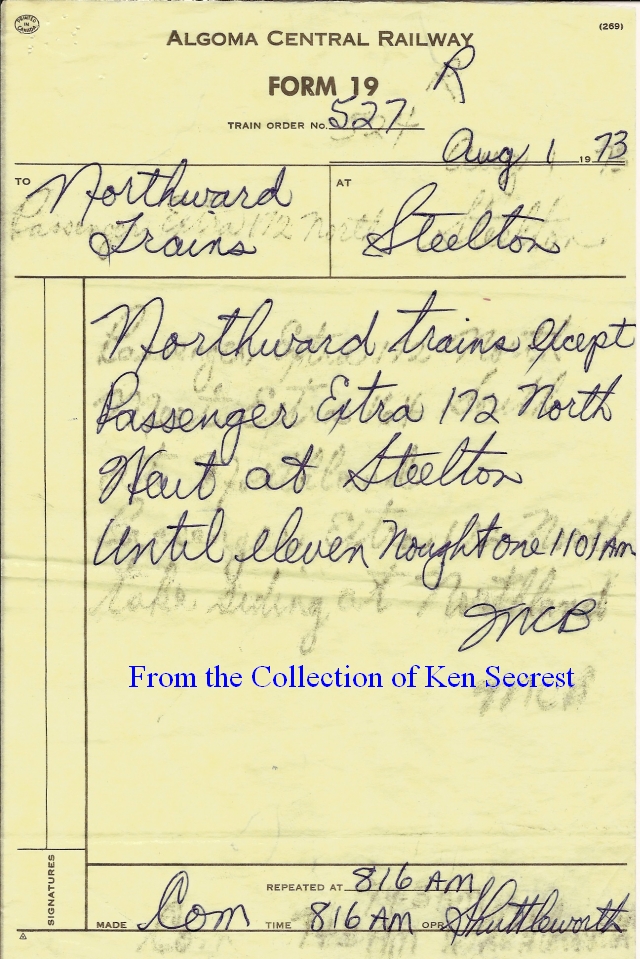 PRINTED IN CANADA
(269)
ALGOMA CENTRAL RAILWAY
FORM 19 R
TRAIN ORDER No. 527
Aug 1 1973
TO Northward Trains
AT Steelton
Northward trains except
Passenger Extra 172 North
Wait at Steelton
Until eleven nought one 1101 AM
JMCB
From the Collection of Ken Secrest
SIGNATURES
REPEATED AT 816 AM
MADE Com TIME 816 AM OPR Shuttleworth